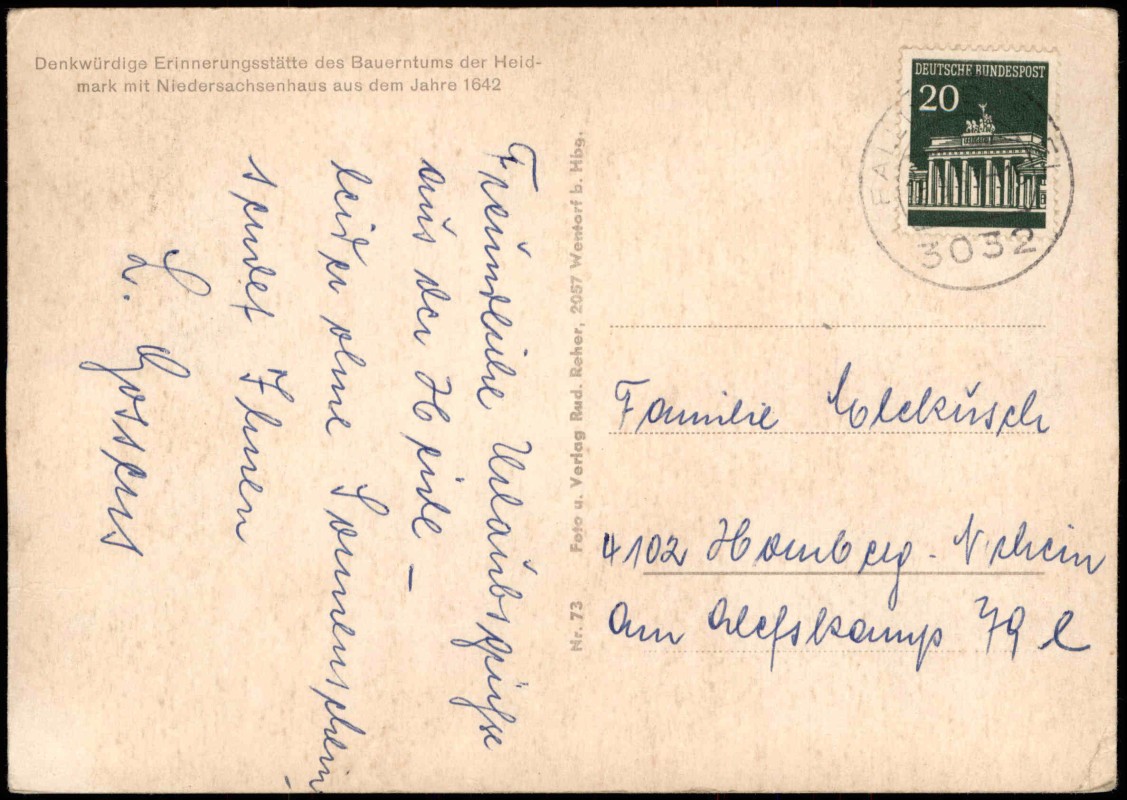 Denkwürdige Erinnerungsstätte des Bauerntums der Heid-
mark mit Niedersachsenhaus aus dem Jahre 1642
Freundliche Urlaubsgrüße
aus der Heide –
leider ohne Sonnenschein
sendet Ihnen
L.
Nr. 73 Foto u. Verlag Rud. Reher, 2057 Wentorf b. Hbg.
DEUTSCHE BUNDESPOST
20
3032
Familie
4102 Homberg-Nrhein
Am Alefskamp 79